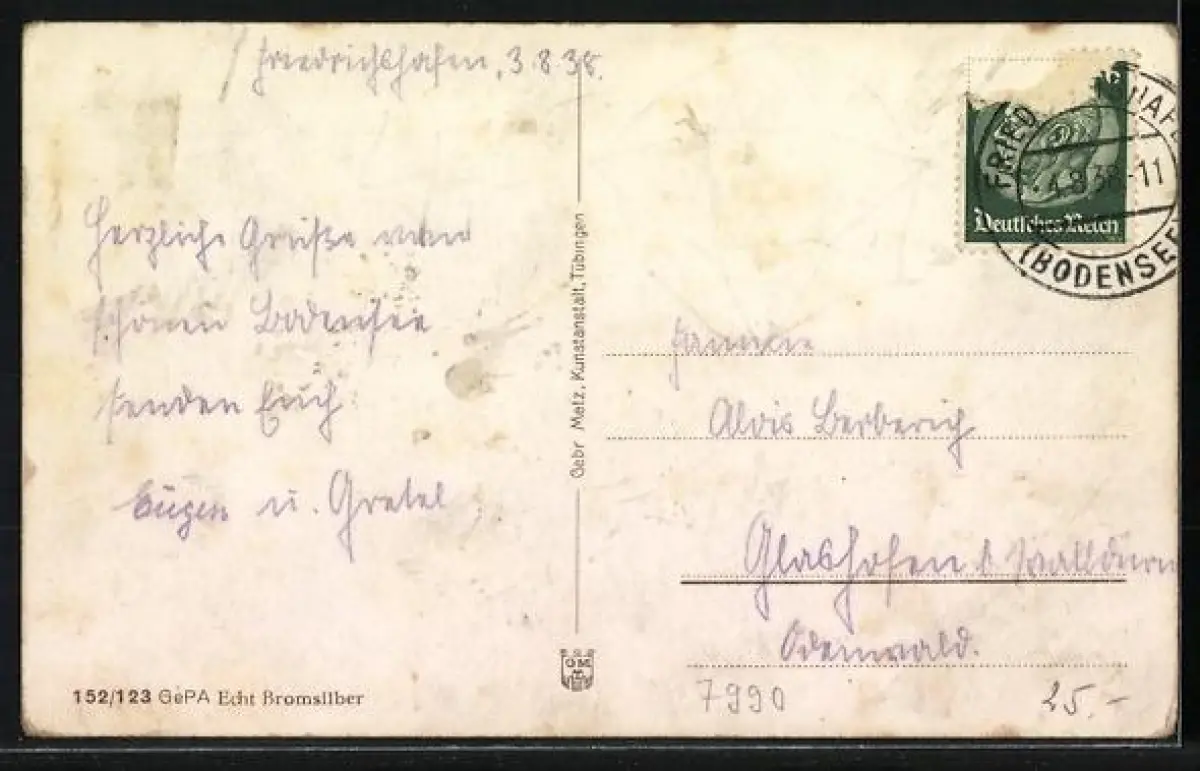 Friedrichshafen, 3.8.38.
Herzliche Grüße vom
schönen Bodensee
senden Euch
Eugen u. Gretel
Gebr Metz, Kunstanstalt, Tübingen
GM
152/123 GePA Echt Bromsilber
Deutsches Reich
FRIED HAF
4.8.38-11
(BODENSEE)
Familie
Alois Berberich
Glashofen b Walldürn
Odenwald.
7990
25.-